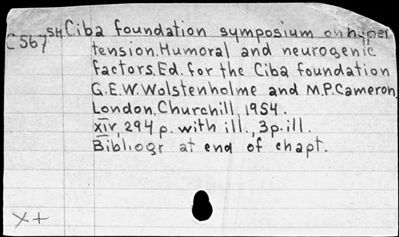 SH Ciba foundation symposium on hyper
C 567
tension. Humoral and neurogenic
factors. Ed. for the Ciba foundation
G.E.W. Wolstenholme and M.P. Cameron,
London, Churchill, 1954.
XIV, 294 p. with ill., 3 p. ill.
Bibliogr at end of chapt.
X+